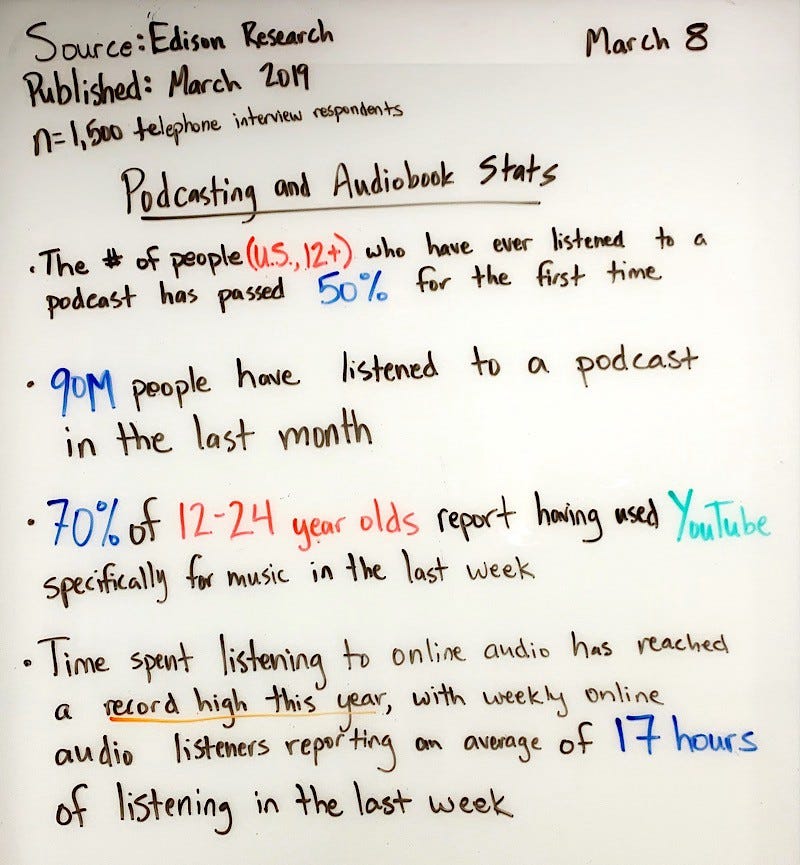 Source: Edison Research
March 8
Published: March 2019
n=1,500 telephone interview respondents
Podcasting and Audiobook Stats
• The # of people (U.S., 12+) who have ever listened to a
podcast has passed 50% for the first time
• 90M people have listened to a podcast
in the last month
• 70% of 12-24 year olds report having used YouTube
specifically for music in the last week
• Time spent listening to online audio has reached
a record high this year, with weekly online
audio listeners reporting an average of 17 hours
of listening in the last week